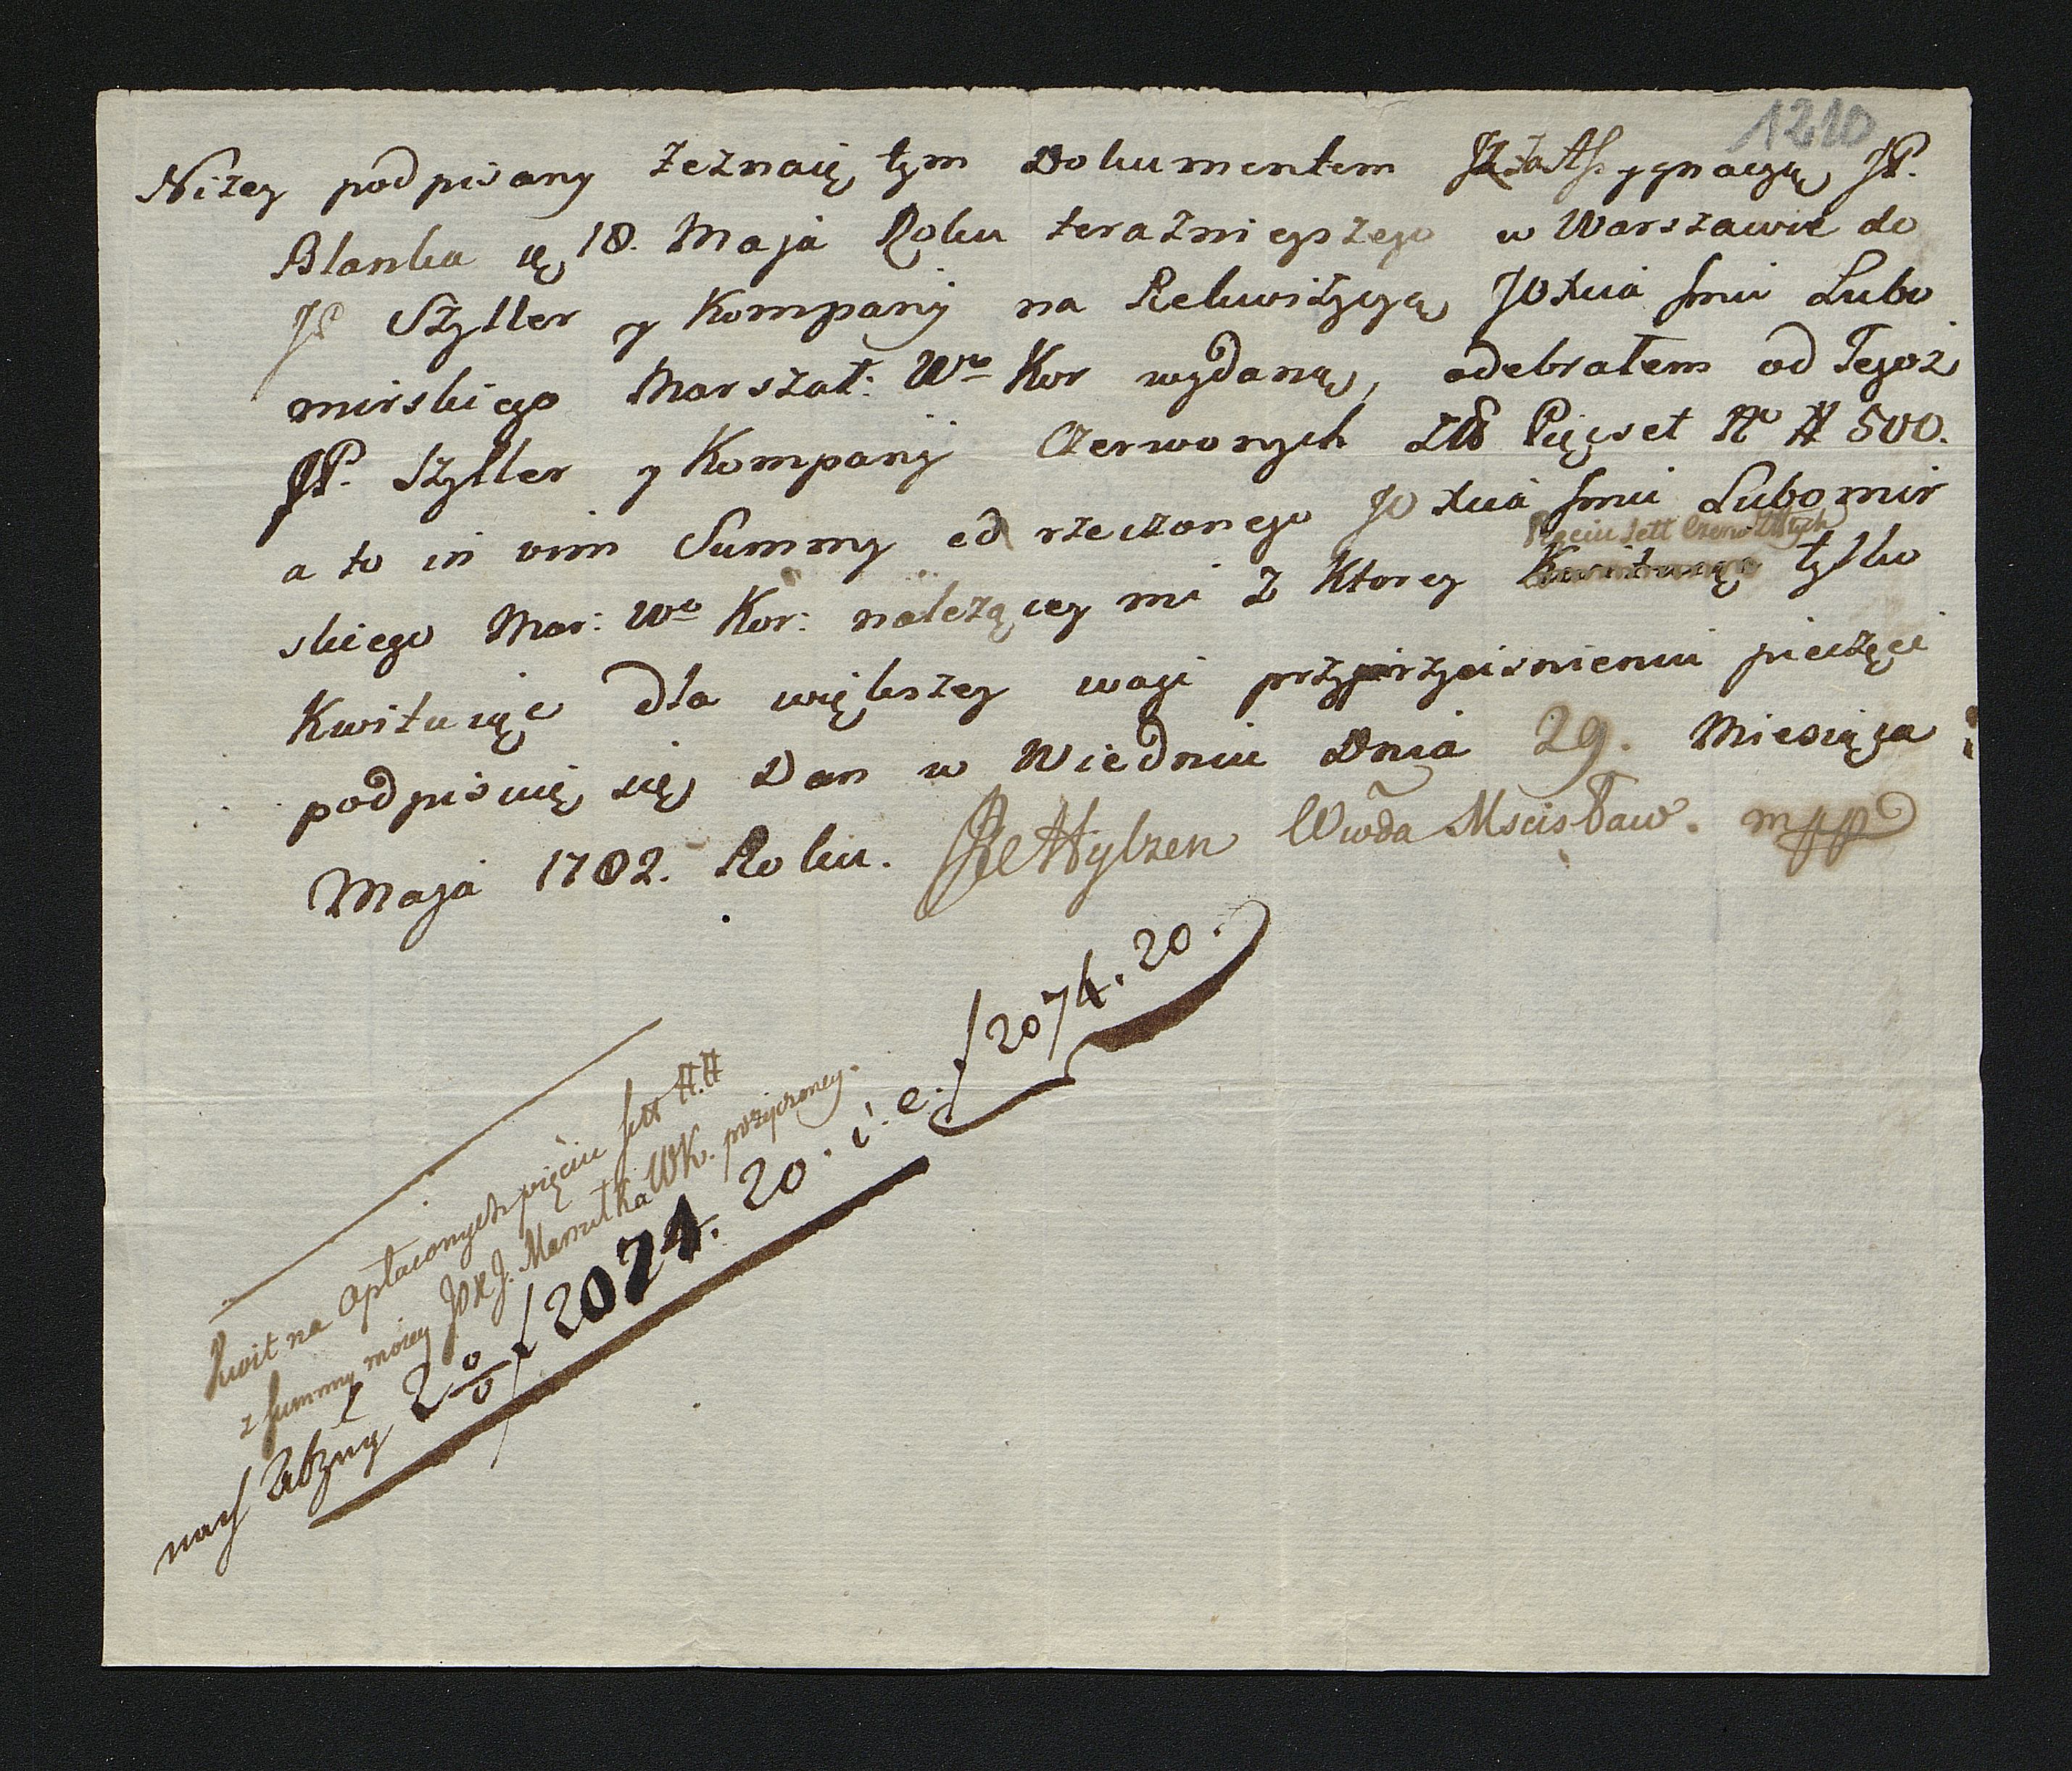 1210
Nizey podpisany zeznaię tym Dokumentem iż za Assygnacyą JP.
Blanka ię 18. Maja Roku teraznieyszego w Warszawie do
JP Szyller y Kompanÿ na Rekwizycyą JO Xcia Jmci Lubo
mirskiego Marszał: Wo Kor wydaną, odebrałem od Tegoż
JP. Szyller y Kompanÿ Czerwonych Złł Pięcset No # 500.
a to in vim Summy od rzeczonego JO Xcia Jmci Lubomir
Pięciu sett Czerw Złłtych
skiego Mar: Wo Kor: nalezącey mi z Ktorey Kwituięc tylko
Kwituięc dla większey wagi przy przycisnieniu pieczęci
podpisuię się Dan w Wiedniu Dnia 29. Miesiąca
Maja 1782. Roku. JHylzen Wwda Mscisław. mpp
Kwit na opłaconych pięciu sett #.#
z summy moiey JOXJ. Marszałka WK. pożyczoney.
nach Abzug 2 0/0 f 2074. 20. i. e. f 2074. 20.